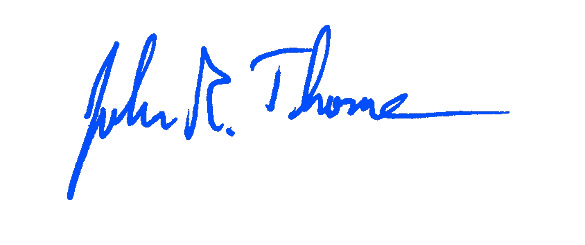 John R. Thome